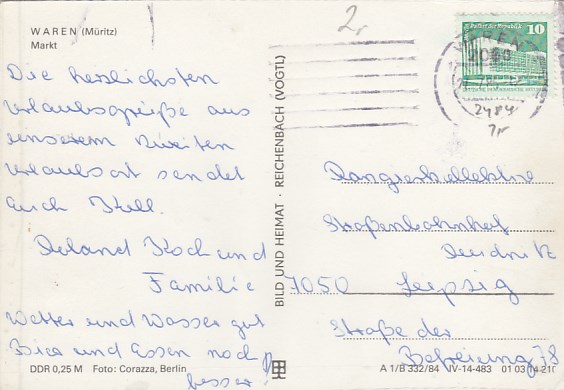 WAREN (Müritz)
Markt
Die herzlichsten
Urlaubsgrüße aus
unserem zweiten
Urlaubsort sendet
Euch Koll.
Roland Koch und
Familie
Wetter und Wasser gut
Bier und Essen noch
besser!
DDR 0,25 M Foto: Corazza, Berlin
BILD UND HEIMAT · REICHENBACH (VOGTL)
2r
WAREN
2060
10
Palast der Republik
2484
7r
Rangierkollektiv
Straßenbahnhof
7050 Leipzig
Straße der
Befreiung 78
A 1/B 332/84 IV-14-483 01 03 14 210